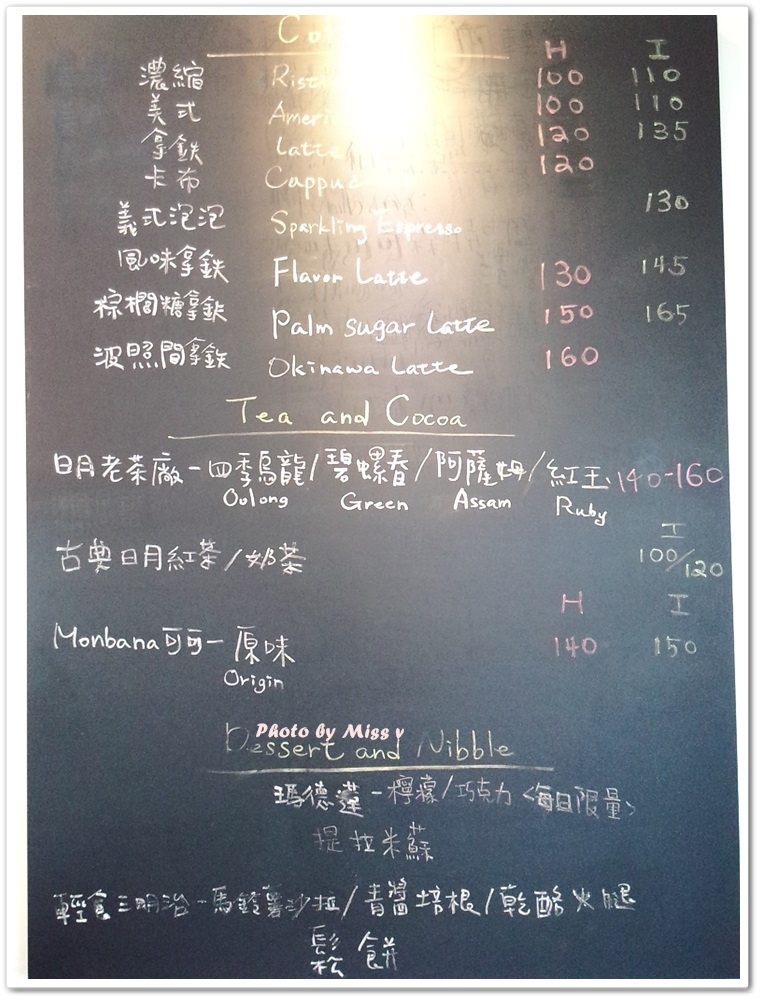 Co
H I
濃縮 Rist 100 110
美式 Ameri 100 110
拿鉄 Latte 120 135
卡布 Cappuc 120
義式泡泡 Sparkling Espresso 130
風味拿鉄 Flavor Latte 130 145
棕櫚糖拿鉄 Palm sugar Latte 150 165
波照間拿鉄 Okinawa Latte 160
Tea and Cocoa
日月老茶廠-四季烏龍/碧螺春/阿薩姆/紅玉 140-160
Oolong Green Assam Ruby
I
古典日月紅茶/奶茶 100/120
H I
Monbana可可-原味 140 150
Origin
Photo by Miss v
Dessert and Nibble
瑪德蓮-檸檬/巧克力<每日限量>
提拉米蘇
輕食三明治-馬鈴薯沙拉/青醬培根/乾酪火腿
鬆餅